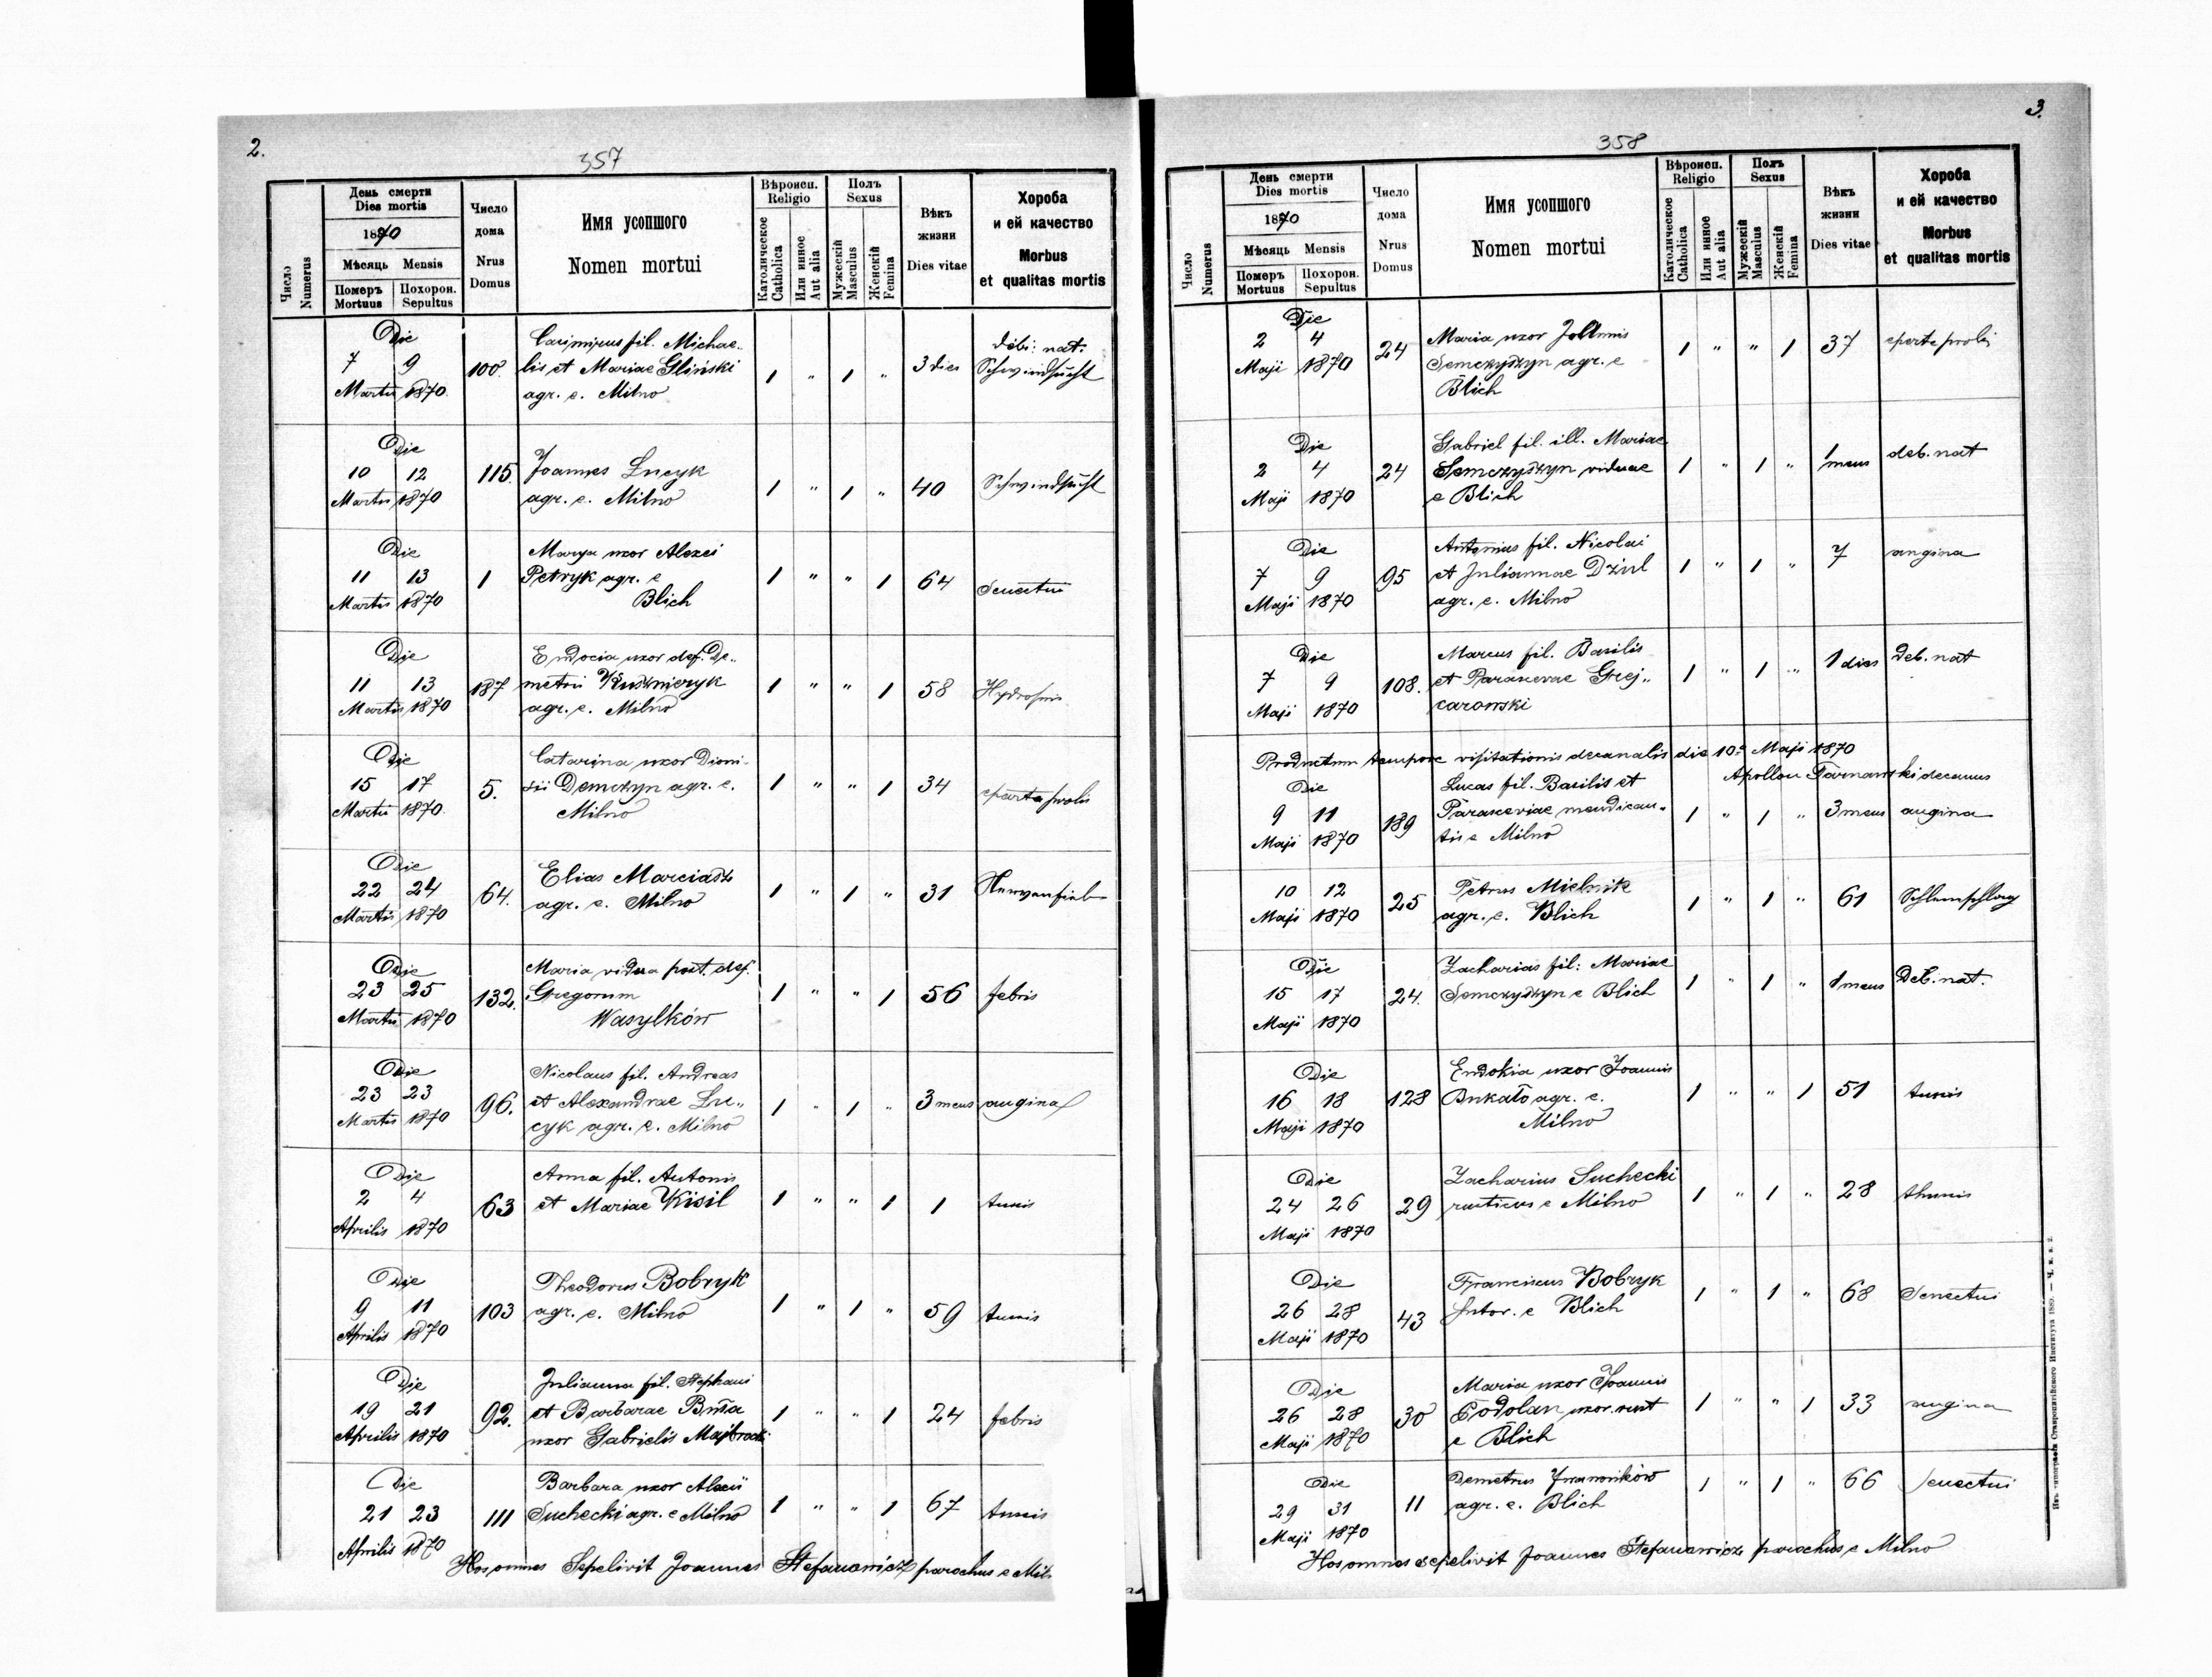 2.
357
Число Numerus
День смерти
Dies mortis
1870
Мѣсяць Mensis
Померъ Mortuus
Похорон. Sepultus
Число дома
Nrus Domus
Имя усопшого
Nomen mortui
Вѣроисп.
Religio
Католическое Catholica
Или инное Aut alia
Полъ
Sexus
Мужескій Masculus
Женскій Femina
Вѣкъ жизни
Dies vitae
Хороба
и ей качество
Morbus
et qualitas mortis
Die
7 9 100. Casimirus fil. Michae- lis et Mariae Gliński 1 " 1 " 3 dies debi: nat. Schwindsucht
Martii 1870. agr. e. Milno
Die
10 12 115. Joannes Lucyk 1 " 1 " 40 Schwindsucht
Martii 1870 agr. e. Milno
Die Marya uxor Alexei
11 13 1 Petryk agr. e 1 " " 1 64 Senectus
Martii 1870 Blich
Die Eudocia uxor def. De„
11 13 187 metrii Kuśznieryk 1 " " 1 58
Martii 1870 agr. e. Milno
Die Catarina uxor Dioni-
15 17 5. sii Demczyn agr. e. 1 " " 1 34 e parte prolis
Martii 1870. Milno
Die Elias Marciasz
22 24 64. agr. e. Milno 1 " 1 " 31 Nervenfieb
Martii 1870
Die Maria vidua post. def.
23 25 132. Gregorum 1 " " 1 56 febris
Martii 1870 Wasylków
Die Nicolaus fil. Andreas
23 23 96. et Alexandrae Lu„ 1 " 1 " 3 mens angina
Martii 1870 cyk agr. e. Milno
Die Anna fil. Antonis
2 4 63 et Mariae Kisil 1 " " 1 1 tussis
Aprilis 1870
Die Theodorus Bobryk
9 11 103 agr. e. Milno 1 " 1 " 59 tussis
Aprilis 1870
Die Julianna fil. Stephani
19 21 92. et Barbarae 1 " " 1 24 febris
Aprilis 1870 uxor Gabrielis
Die Barbara uxor Alexii
21 23 111 Suchecki agr. e Milno 1 " " 1 67 tussis
Aprilis 1870
Hos omnes Sepelivit Joannes Stefanowicz parochus e Mil
3.
358
Число Numerus
День смерти
Dies mortis
1870
Мѣсяць Mensis
Померъ Mortuus
Похорон. Sepultus
Число дома
Nrus Domus
Имя усопшого
Nomen mortui
Вѣроисп.
Religio
Католическое Catholica
Или инное Aut alia
Полъ
Sexus
Мужескій Masculus
Женскій Femina
Вѣкъ жизни
Dies vitae
Хороба
и ей качество
Morbus
et qualitas mortis
Die Maria uxor
2 4 24 Semczyszyn agr. e 1 " " 1 37 e parte prolis
Maji 1870 Blich
Die Gabriel fil. ill. Mariae
2 4 24 Semczyszyn viduae 1 " 1 " 1 mens deb. nat
Maji 1870 e Blich
Die Antonius fil. Nicolai
7 9 95 et Juliannae Dziul 1 " 1 " 7 angina
Maji 1870 agr. e. Milno
Die Marcus fil. Basilis
7 9 108. et Parascevae Grej„ 1 " 1 " 1 dies Deb. nat
Maji 1870 carowski
Productum tempore visitationis decanalis die 10ª Maji 1870
Apollon Tarnawski decanus
Die Lucas fil. Basilis et
9 11 189 Parasceviae mendican„ 1 " 1 " 3 mens angina
Maji 1870 tis e Milno
10 12 25 Petrus Mielnik 1 " 1 " 61
Maji 1870 agr. e. Blich
Die Zacharias fil: Mariae
15 17 24. Semczyszyn e Blich 1 " 1 " 1 mens Deb. nat.
Maji 1870
Die Eudokia uxor Joannis
16 18 128 Bukało agr. e. 1 " " 1 51 tussis
Maji 1870 Milno
Die Zacharius Suchecki
24 26 29 rusticus e Milno 1 " 1 " 28
Maji 1870
Die Franciscus Bobryk
26 28 43 sutor. e Blich 1 " 1 " 68 Senectus
Maji 1870
Die Maria uxor Joannis
26 28 30 Podolan uxor. rust 1 " " 1 33 angina
Maji 1870 e Blich
Die Demetrus
29 31 11 agr. e. Blich 1 " 1 " 66 Senectus
Maji 1870
Hos omnes sepelivit Joannes Stefanowicz parochus e Milno
Изъ типографіи Ставропигійского Института 1889. — Ч. в. в. 2.